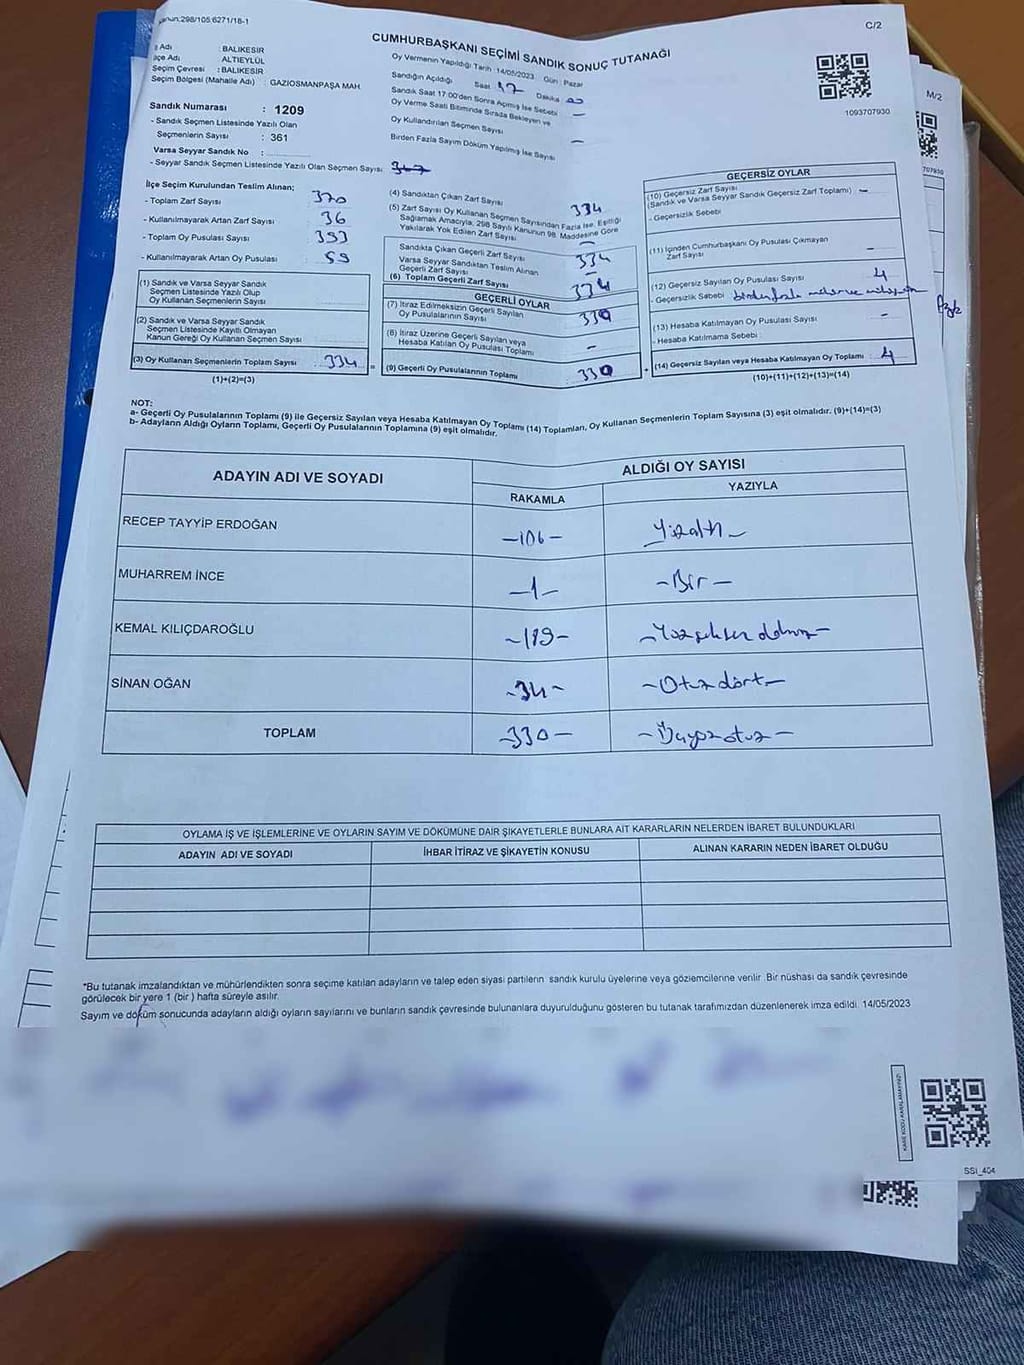 Kanun:298/105.6271/18-1
C/2
CUMHURBAŞKANI SEÇİMİ SANDIK SONUÇ TUTANAĞI
İl Adı : BALIKESİR
İlçe Adı : ALTIEYLÜL
Seçim Çevresi : BALIKESİR
Seçim Bölgesi (Mahalle Adı) : GAZİOSMANPAŞA MAH.
Sandık Numarası : 1209
- Sandık Seçmen Listesinde Yazılı Olan
Seçmenlerin Sayısı : 361
Varsa Seyyar Sandık No :
- Seyyar Sandık Seçmen Listesinde Yazılı Olan Seçmen Sayısı
Oy Vermenin Yapıldığı Tarih :14/05/2023 Gün : Pazar
Sandığın Açıldığı Saat 17 Dakika
Sandık Saat 17:00'den Sonra Açılmış İse Sebebi —
Oy Verme Saati Bitiminde Sırada Bekleyen ve
Oy Kullandırılan Seçmen Sayısı —
Birden Fazla Sayım Döküm Yapılmış İse Sayısı
1093707930
M/2
707930
İlçe Seçim Kurulundan Teslim Alınan;
- Toplam Zarf Sayısı 370
- Kullanılmayarak Artan Zarf Sayısı 36
- Toplam Oy Pusulası Sayısı 393
- Kullanılmayarak Artan Oy Pusulası 59
(1) Sandık ve Varsa Seyyar Sandık
Seçmen Listesinde Yazılı Olup
Oy Kullanan Seçmenlerin Sayısı
(2) Sandık ve Varsa Seyyar Sandık
Seçmen Listesinde Kayıtlı Olmayan
Kanun Gereği Oy Kullanan Seçmen Sayısı
(3) Oy Kullanan Seçmenlerin Toplam Sayısı 334
(1)+(2)=(3)
(4) Sandıktan Çıkan Zarf Sayısı 334
(5) Zarf Sayısı Oy Kullanan Seçmen Sayısından Fazla İse, Eşitliği
Sağlamak Amacıyla, 298 Sayılı Kanunun 98. Maddesine Göre
Yakılarak Yok Edilen Zarf Sayısı —
Sandıkta Çıkan Geçerli Zarf Sayısı 334
Varsa Seyyar Sandıktan Teslim Alınan
Geçerli Zarf Sayısı —
(6) Toplam Geçerli Zarf Sayısı 334
GEÇERLİ OYLAR
(7) İtiraz Edilmeksizin Geçerli Sayılan
Oy Pusulalarının Sayısı 330
(8) İtiraz Üzerine Geçerli Sayılan veya
Hesaba Katılan Oy Pusulası Toplamı —
(9) Geçerli Oy Pusulalarının Toplamı 330
GEÇERSİZ OYLAR
(10) Geçersiz Zarf Sayısı
(Sandık ve Varsa Seyyar Sandık Geçersiz Zarf Toplamı) —
- Geçersizlik Sebebi
(11) İçinden Cumhurbaşkanı Oy Pusulası Çıkmayan
Zarf Sayısı —
(12) Geçersiz Sayılan Oy Pusulası Sayısı 4
- Geçersizlik Sebebi birden fazla mühür
(13) Hesaba Katılmayan Oy Pusulası Sayısı —
- Hesaba Katılmama Sebebi
(14) Geçersiz Sayılan veya Hesaba Katılmayan Oy Toplamı 4
(10)+(11)+(12)+(13)=(14)
NOT:
a- Geçerli Oy Pusulalarının Toplamı (9) ile Geçersiz Sayılan veya Hesaba Katılmayan Oy Toplamı (14) Toplamları, Oy Kullanan Seçmenlerin Toplam Sayısına (3) eşit olmalıdır. (9)+(14)=(3)
b- Adayların Aldığı Oyların Toplamı, Geçerli Oy Pusulalarının Toplamına (9) eşit olmalıdır.
ADAYIN ADI VE SOYADI ALDIĞI OY SAYISI
RAKAMLA YAZIYLA
RECEP TAYYİP ERDOĞAN —106— Yüzaltı—
MUHARREM İNCE —1— —Bir—
KEMAL KILIÇDAROĞLU —189— —Yüzseksendokuz—
SİNAN OĞAN —34— —Otuzdört—
TOPLAM —330— —Üçyüzotuz—
OYLAMA İŞ VE İŞLEMLERİNE VE OYLARIN SAYIM VE DÖKÜMÜNE DAİR ŞİKAYETLERLE BUNLARA AİT KARARLARIN NELERDEN İBARET BULUNDUKLARI
ADAYIN ADI VE SOYADI İHBAR İTİRAZ VE ŞİKAYETİN KONUSU ALINAN KARARIN NEDEN İBARET OLDUĞU
*Bu tutanak imzalandıktan ve mühürlendikten sonra seçime katılan adayların ve talep eden siyasi partilerin sandık kurulu üyelerine veya gözlemcilerine verilir. Bir nüshası da sandık çevresinde
görülecek bir yere 1 (bir ) hafta süreyle asılır.
Sayım ve döküm sonucunda adayların aldığı oyların sayılarını ve bunların sandık çevresinde bulunanlara duyurulduğunu gösteren bu tutanak tarafımızdan düzenlenerek imza edildi. 14/05/2023
KARE KODU KARALAMAYINIZ!
SSİ_404